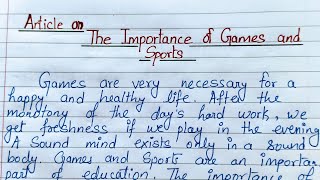 Article on
The Importance of Games and
Sports
Games are very necessary for a
happy and healthy life. After the
monotony of the day's hard work, we
get freshness if we play in the evening
A Sound mind exists only in a sound
body. Games and Sports are an importa
part of education. The importance of